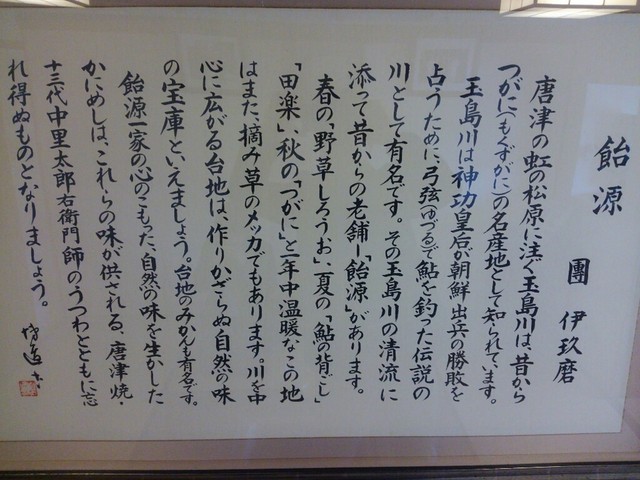 飴源
團 伊玖磨
唐津の虹の松原に注ぐ玉島川は、昔から
つがに(もくずがに)の名産地として知られています。
玉島川は神功皇后が朝鮮出兵の勝敗を
占うために、弓弦(ゆづる)で鮎を釣った伝説の
川として有名です。その玉島川の清流に
添って昔からの老舗―「飴源」があります。
春の、「野草しろうお」、夏の、「鮎の背ごし」
「田楽」、秋の、「つがに」と一年中温暖なこの地
はまた、摘み草のメッカでもあります。川を中
心に広がる台地は、作りかざらぬ自然の味
の宝庫といえましょう。台地のみかんも有名です。
飴源一家の心のこもった、自然の味を生かした
かにめしは、これらの味が供される、唐津焼・
十三代中里太郎右衛門師のうつわとともに忘
れ得ぬものとなりましょう。